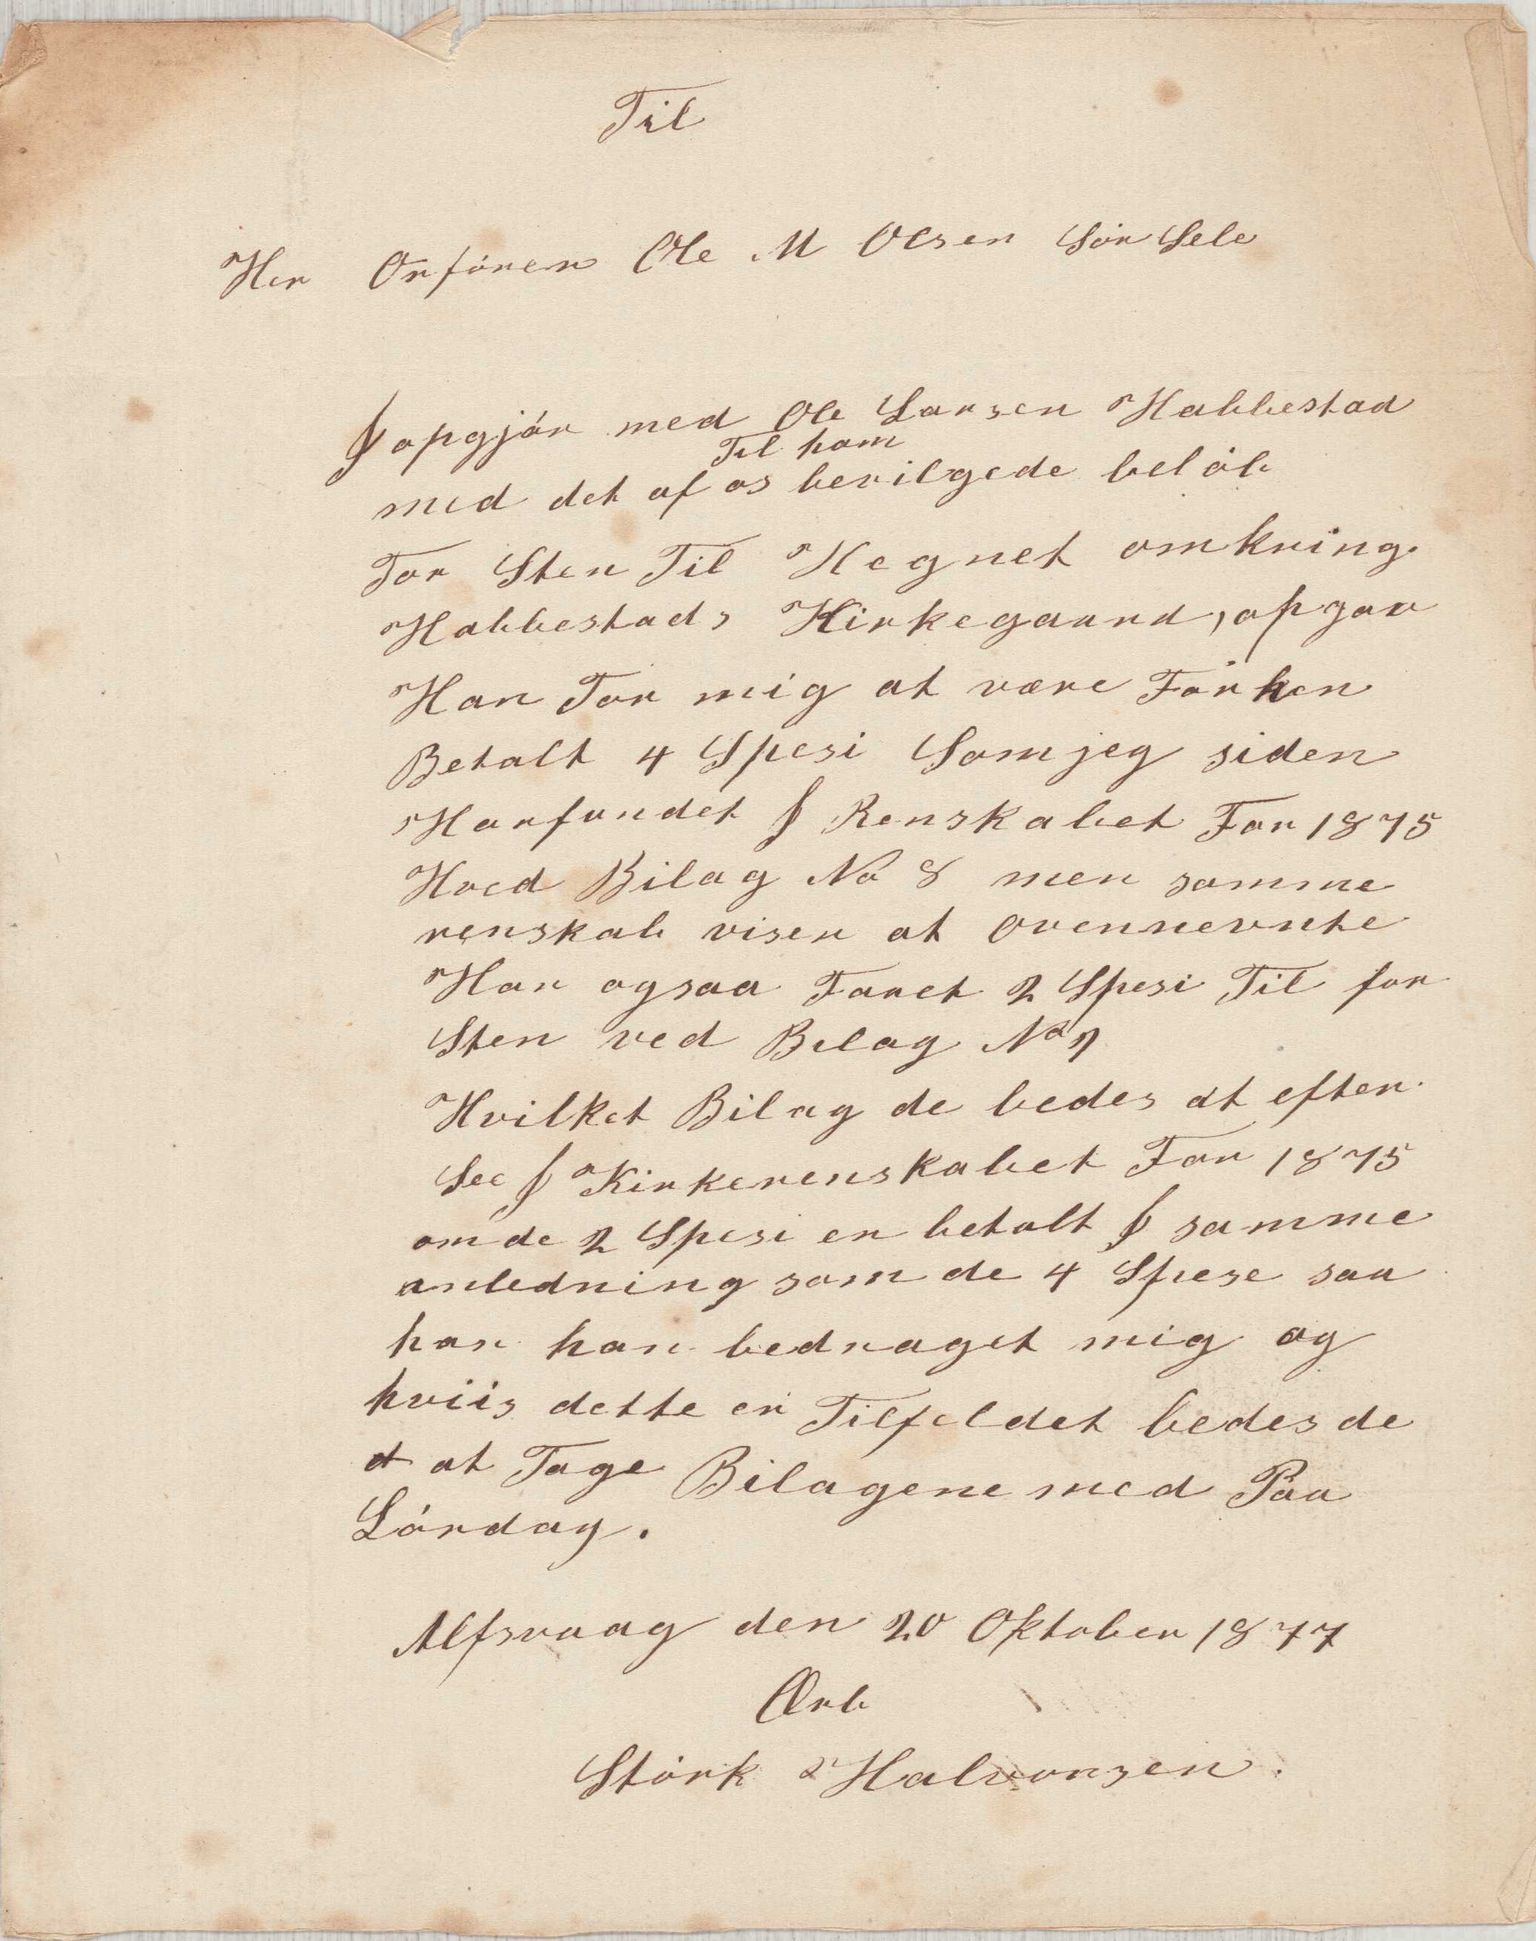 Til
Her Orfører Ole M Olsen Sør Sele
I opgjør med Ole Larsen Habbestad
Til ham
med det af os bevilgede beløb
For Sten Til Hegnet omkring
Habbestads Kirkegaard, opgav
Han For mig at være Før ken
Betalt 4 Spesi Som jeg siden
Har fundet I Renskabet For 1875
Hved Bilag No 8 men samme
renskab viser at ovennevnte
Har ogsaa Faaet 2 Spesi Til for
Sten ved Bilag No 7
Hvilket Bilag de bedes at efter
See I Kirkerenskabet For 1875
om de 2 Spesi er betalt I samme
anledning som de 4 Spese saa
har han bedraget mig og
hviis dette er Tilfeldet bedes de
at Tage Bilagene med Paa
Lørdag.
Alfsvaag den 20 Oktober 1877
Ærb
Størk Halvorsen.